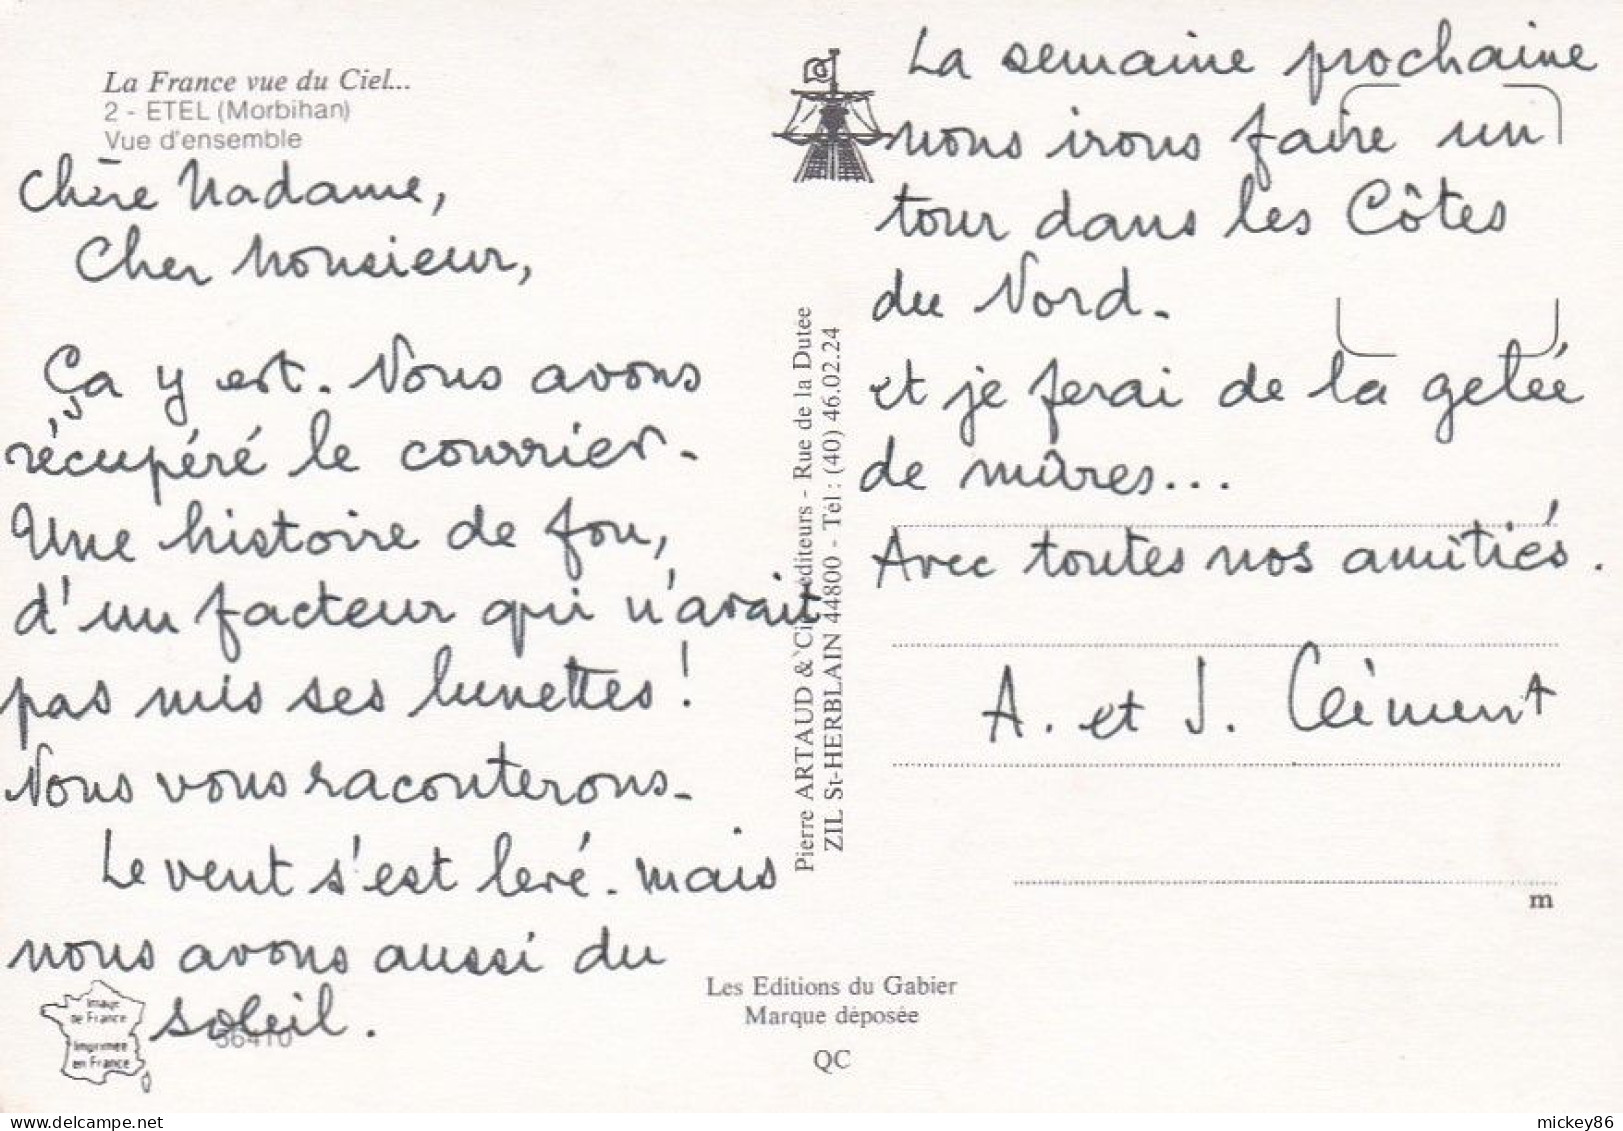 La France vue du Ciel...
2 - ETEL (Morbihan)
Vue d'ensemble
Chère Madame,
Cher Monsieur,
Ça y est. Nous avons
récupéré le courrier.
Une histoire de fou,
d'un facteur qui n'avait
pas mis ses lunettes !
Nous vous raconterons.
Le vent s'est levé. mais
nous avons aussi du
soleil.
Image
de France
Imprimée
en France
56410
Pierre ARTAUD & Cie éditeurs - Rue de la Dutee
ZIL St-HERBLAIN 44800 - Tèl : (40) 46.02.24
La semaine prochaine
nous irons faire un
tour dans les Côtes
du Nord.
et je ferai de la gelée
de mûres...
Avec toutes nos amitiés.
A. et J. Clément
m
Les Editions du Gabier
Marque déposée
QC
mickey86